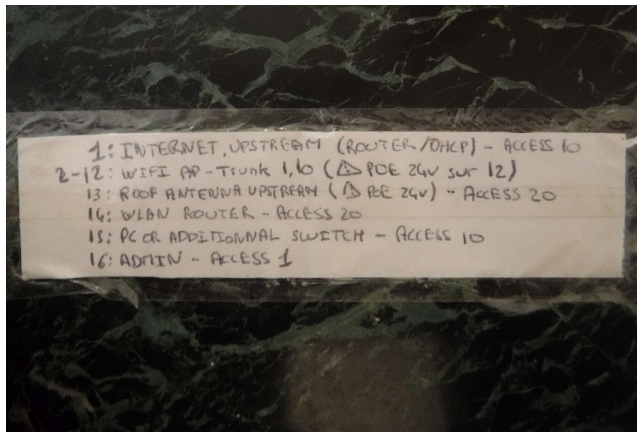 1: INTERNET, UPSTREAM (ROUTER/DHCP) - ACCESS 10
2-12: WIFI AP - Trunk 1,10 (⚠ POE 24V sur 12)
13: ROOF ANTENNA UPSTREAM (⚠ POE 24V) - ACCESS 20
14: WLAN ROUTER - ACCESS 20
15: PC OR ADDITIONNAL SWITCH - ACCESS 10
16: ADMIN - ACCESS 1